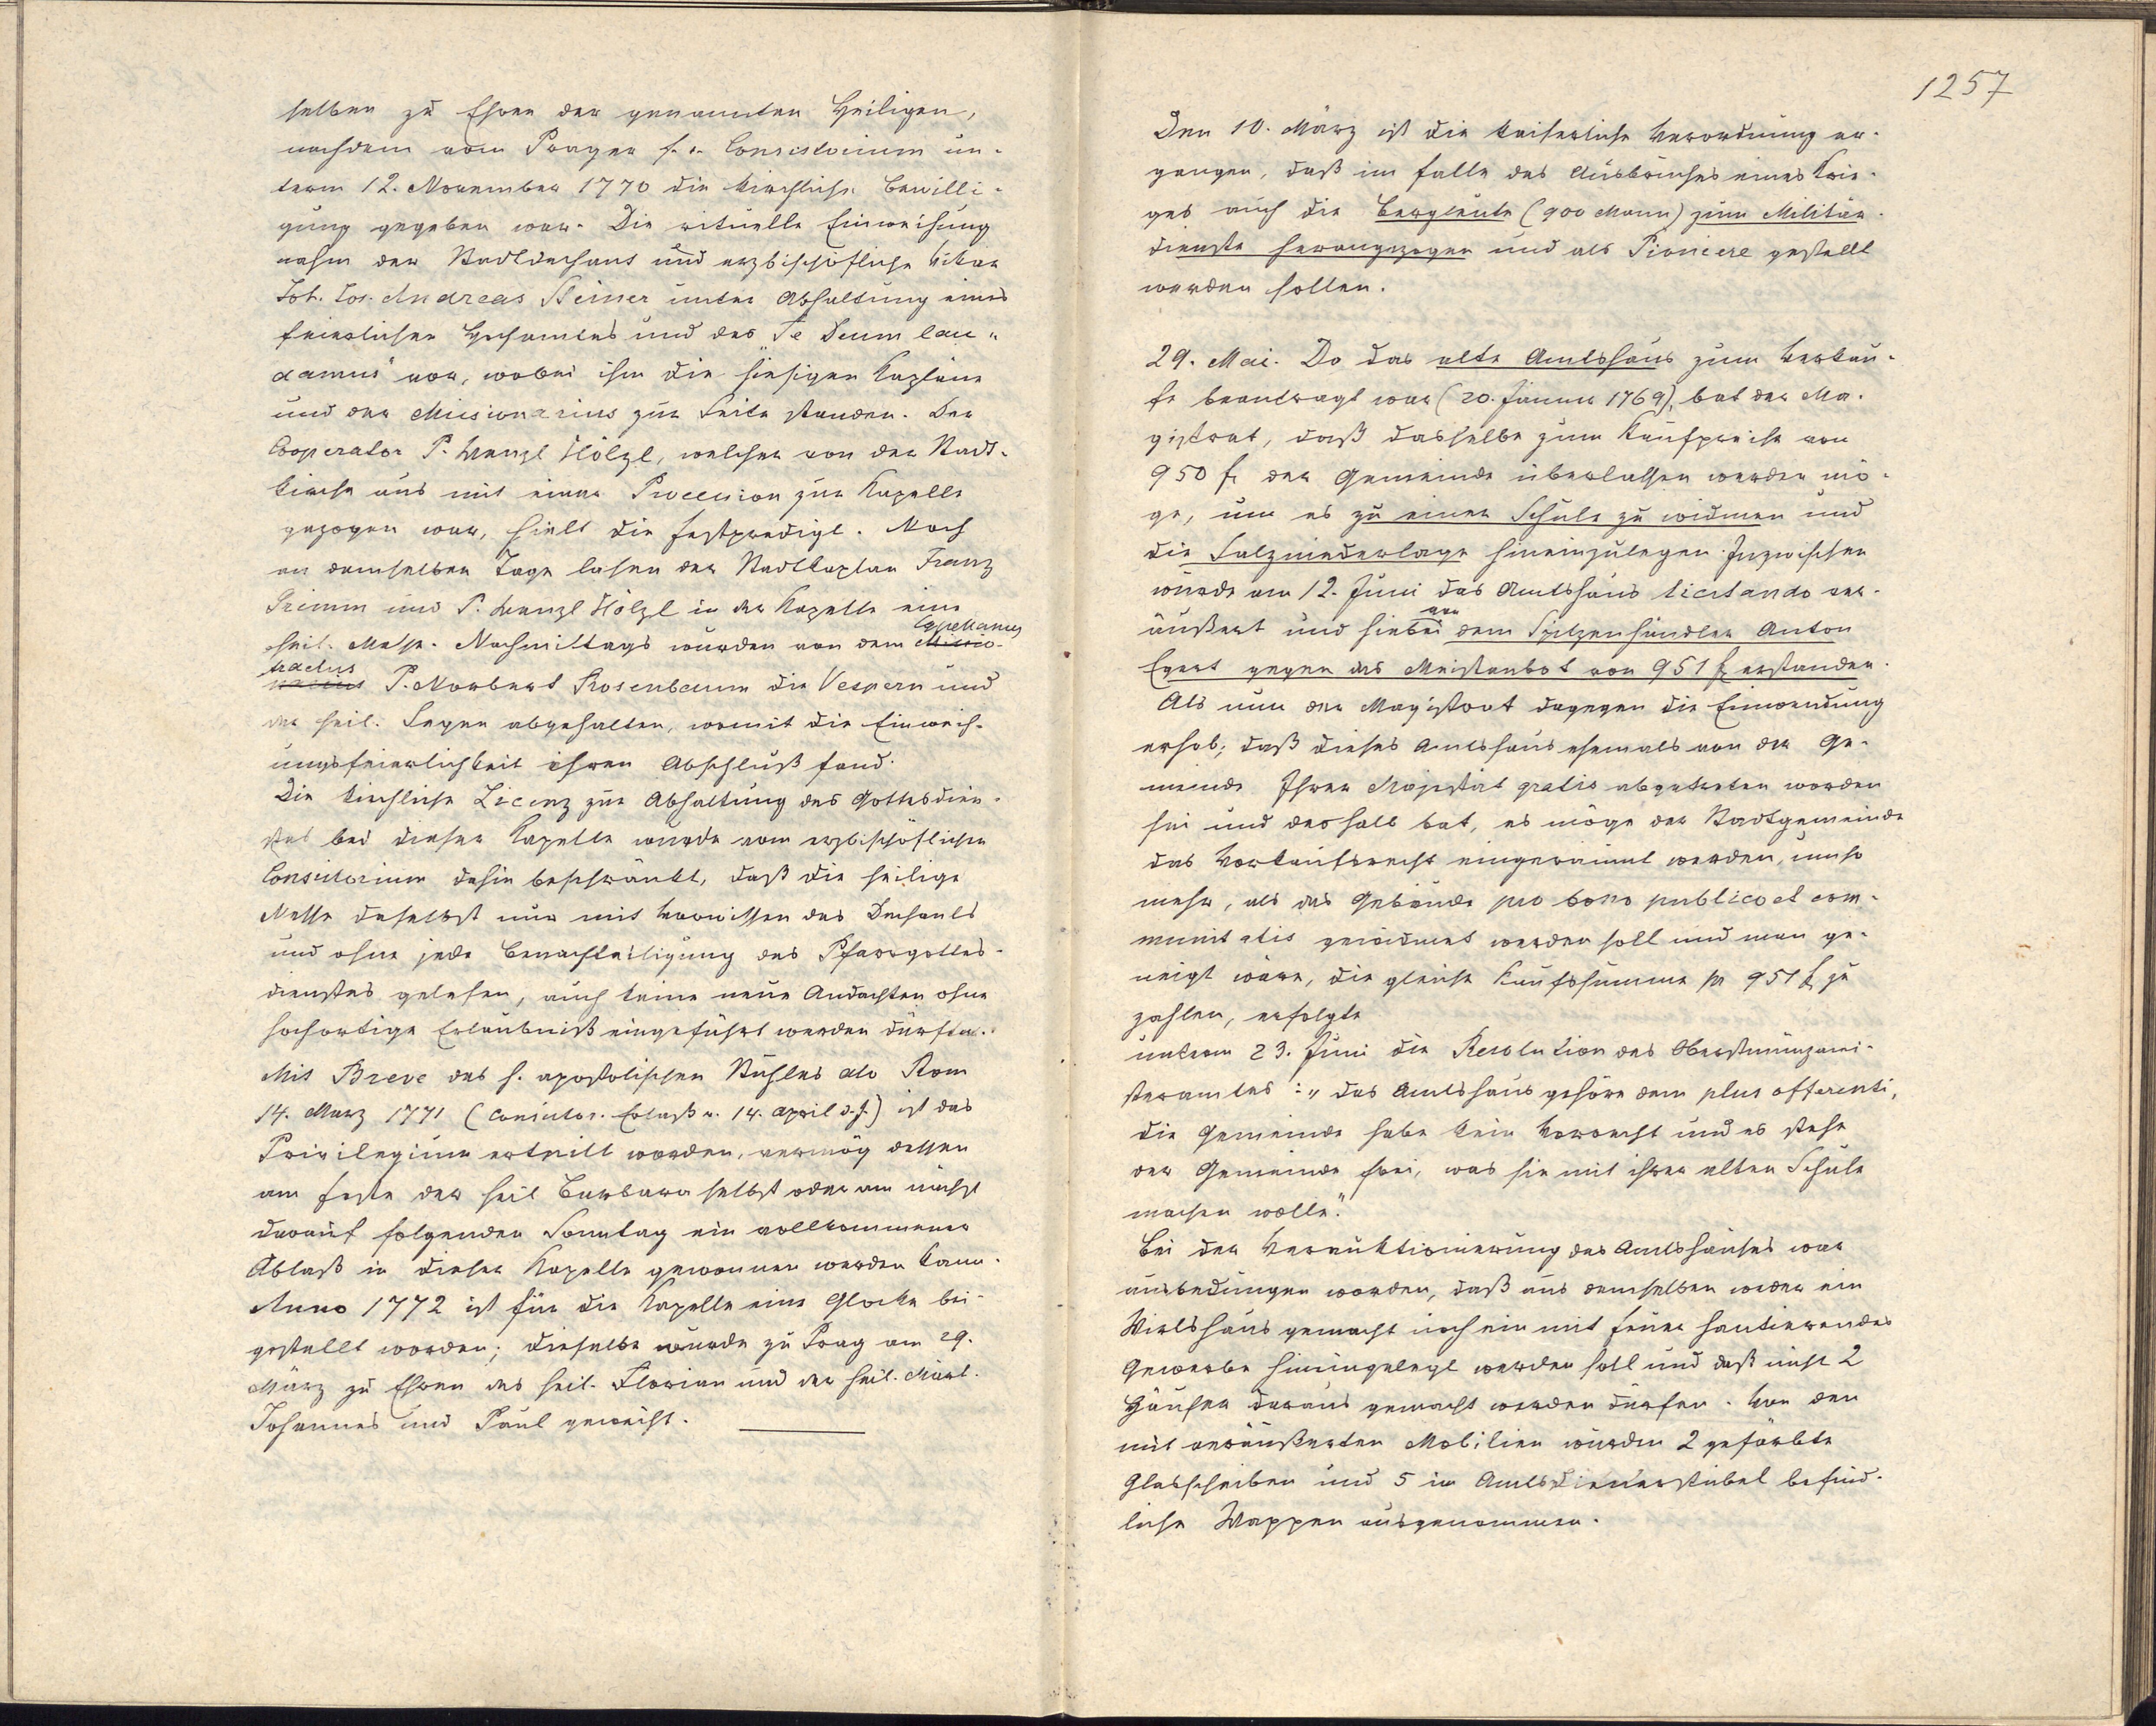 selben zu Ehren der genannten Heiligen,
nachdem vom Prager f. e. Consistorium un-
term 12. November 1770 die kirchliche Bewilli-
gung gegeben war. Die rituelle Einweihung
nahm der Stadtdechant und erzbischöfliche Vikar
Joh. Jos. Andreas Steiner unter Abhaltung eines
feierlichen Hochamtes und des „Te Deum lau-
damus“ vor, wobei ihm die hiesigen Kapläne
und der Missionarius zur Seite standen. Der
Cooperator P. Wenzl Hölzl, welcher von der Stadt-
kirche aus mit einer Procession zur Kapelle
gezogen war, hielt die Festpredigt. Noch
an demselben Tage lasen der Stadtkaplan Franz
Grimm und P. Wenzl Hölzl in der Kapelle eine
heil. Messe. Nachmittags wurden von dem Missio- Capellanus
narius tractus P. Norbert Rosenbaum die Vespern und
der heil. Segen abgehalten, womit die Einweih-
ungsfeierlichkeit ihren Abschluß fand.
Die kirchliche Licenz zur Abhaltung des Gottesdien-
stes bei dieser Kapelle wurde vom erzbischöflichen
Consistorium dahin beschränkt, daß die heilige
Messe daselbst nur mit Vorwissen des Dechants
und ohne jede Benachteiligung des Pfarrgottes-
dienstes gelesen, auch keine neue Andachten ohne
hochortige Erlaubniß eingeführt werden dürfen.
Mit Breve des h. apostolischen Stuhles dto Rom
14. März 1771 (Consistor. Erlaß v. 14. April d. J.) ist das
Privilegium erteilt worden, vermög dessen
am Feste der heil Barbara selbst oder am nächst
darauf folgenden Sonntag ein vollkommener
Ablaß in dieser Kapelle gewonnen werden kann.
Anno 1772 ist für die Kapelle eine Glocke bei-
gestellt worden; dieselbe wurde zu Prag am 29.
März zu Ehren des heil. Florian und der heil. Märt.
Johannes und Paul geweiht.
1257
Den 10. März ist die kaiserliche Verordnung er-
gangen, daß im Falle des Ausbruches eines Krie-
ges auch die Bergleute (900 Mann) zum Militär-
dienste herangezogen und als Pioniere gestellt
werden sollen.
29. Mai. Da das alte Amtshaus zum Verkau-
fe beantragt war (20. Jänner 1769), bat der Ma-
gistrat, daß dasselbe zum Kaufpreise von
950 fl der Gemeinde überlassen werden mö-
ge, um es zu einer Schule zu widmen und
die Salzniederlage hineinzulegen. Inzwischen
wurde am 12. Juni das Amtshaus licitando ver-
äußert und hiebei von dem Spitzenhändler Anton
Egert gegen das Meistanbot von 951 fl erstanden.
Als nun der Magistrat dagegen die Einwendung
erhob, daß dieses Amtshaus ehemals von der Ge-
meinde Ihrer Majestät gratis abgetreten worden
sei und deshalb bat, es möge der Stadtgemeinde
das Vorkaufsrecht eingeräumt werden, umso
mehr, als das Gebäude pro bono publico et com-
munitatis gewidmet werden soll und man ge-
neigt wäre, die gleiche Kaufssumme pr 951 fl zu
zahlen, erfolgte
unterm 23. Juni die Resolution des Oberstmünzmei-
steramtes: „das Amtshaus gehöre dem plus offerenti,
die Gemeinde habe kein Vorrecht und es stehe
der Gemeinde frei, was sie mit ihrer alten Schule
machen wolle.“
Bei der Verauktionierung des Amtshauses war
ausbedungen worden, daß aus demselben weder ein
Wirtshaus gemacht noch ein mit Feuer hantierendes
Gewerbe hineingelegt werden soll und daß nicht 2
Häuser daraus gemacht werden dürfen. Von den
mit veräußerten Mobilien wurden 2 gefärbte
Glasscheiben und 5 im Amtsdienerstübel befind-
liche Wappen ausgenommen.